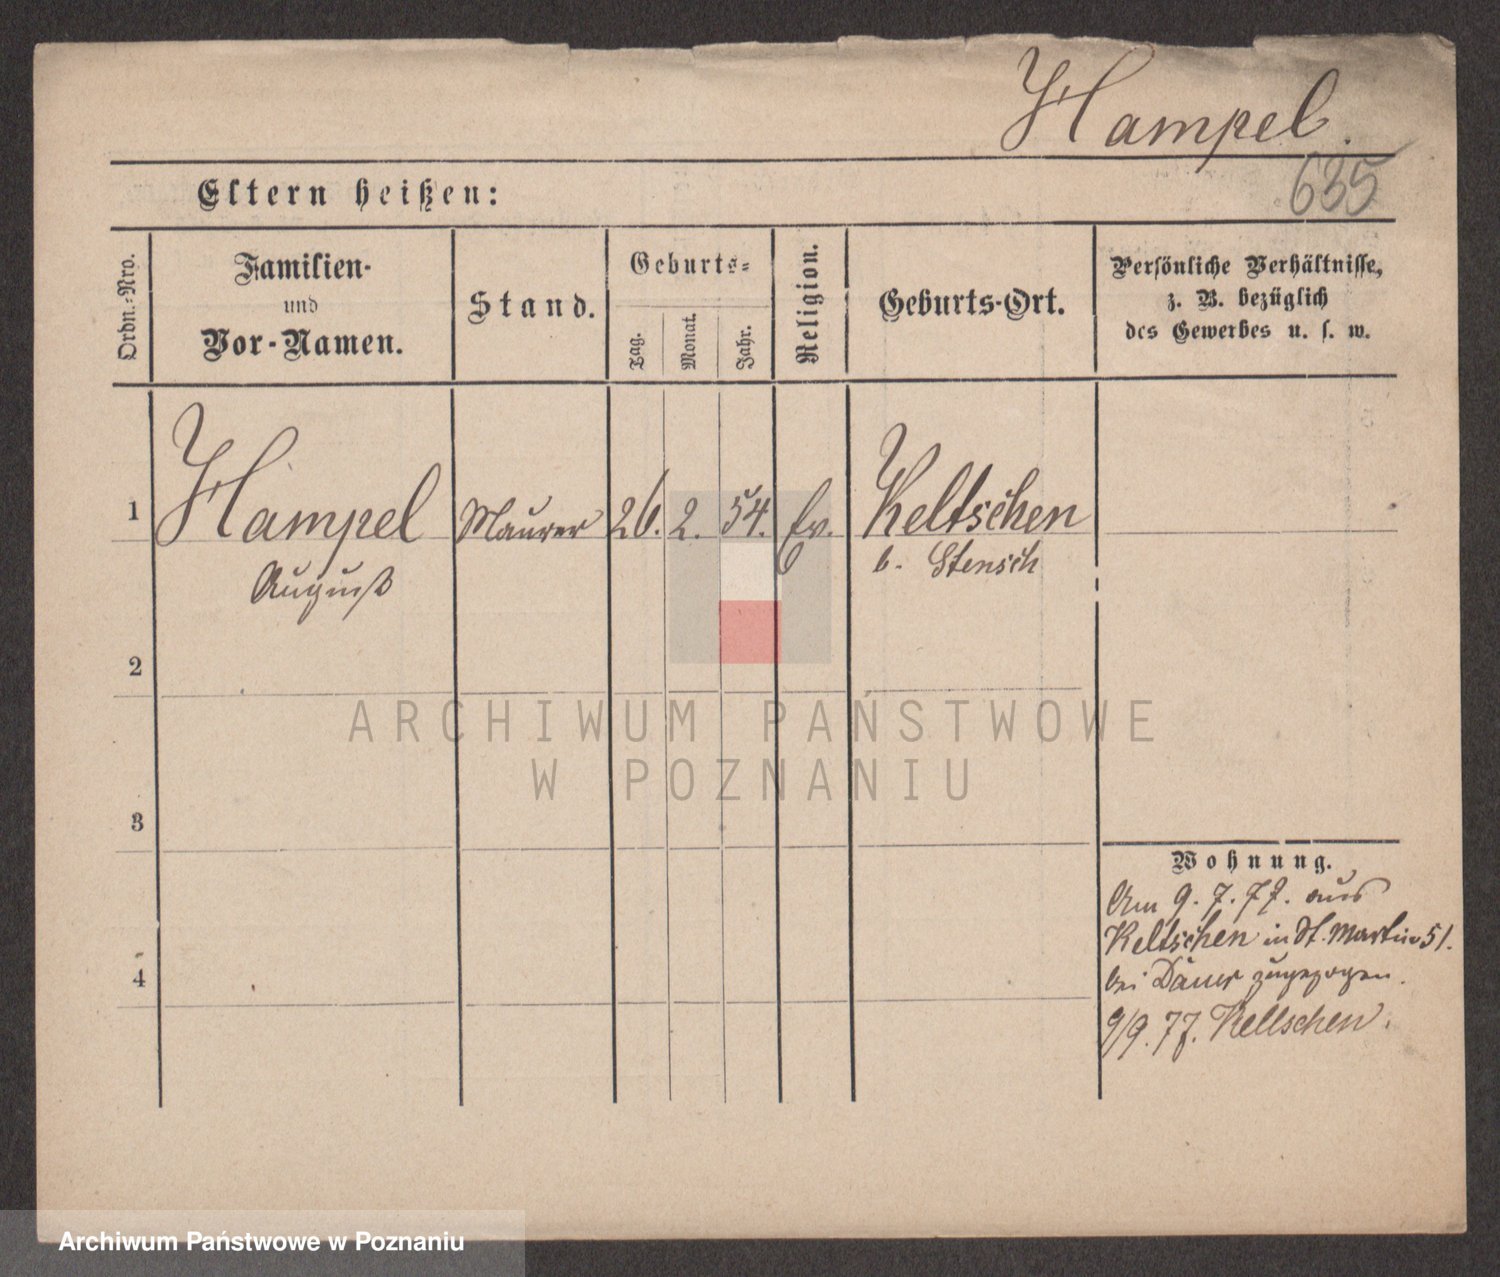 Hampel.
635
Eltern heißen:
Ordn.-Nro.
Familien-
und
Vor-Namen.
Stand.
Geburts-
Tag.
Monat.
Jahr.
Religion.
Geburts-Ort.
Persönliche Verhältnisse,
z. B. bezüglich
des Gewerbes u. s. w.
1 Hampel Maurer 26. 2. 54. Ev. Keltschen
August b. Stensch
2
3
4
Wohnung.
Am 9. 7. 77. aus
Keltschen in St. Martin 51.
bei Däuer zugezogen.
9/9. 77. Keltschen.
ARCHIWUM PAŃSTWOWE
W POZNANIU
Archiwum Państwowe w Poznaniu